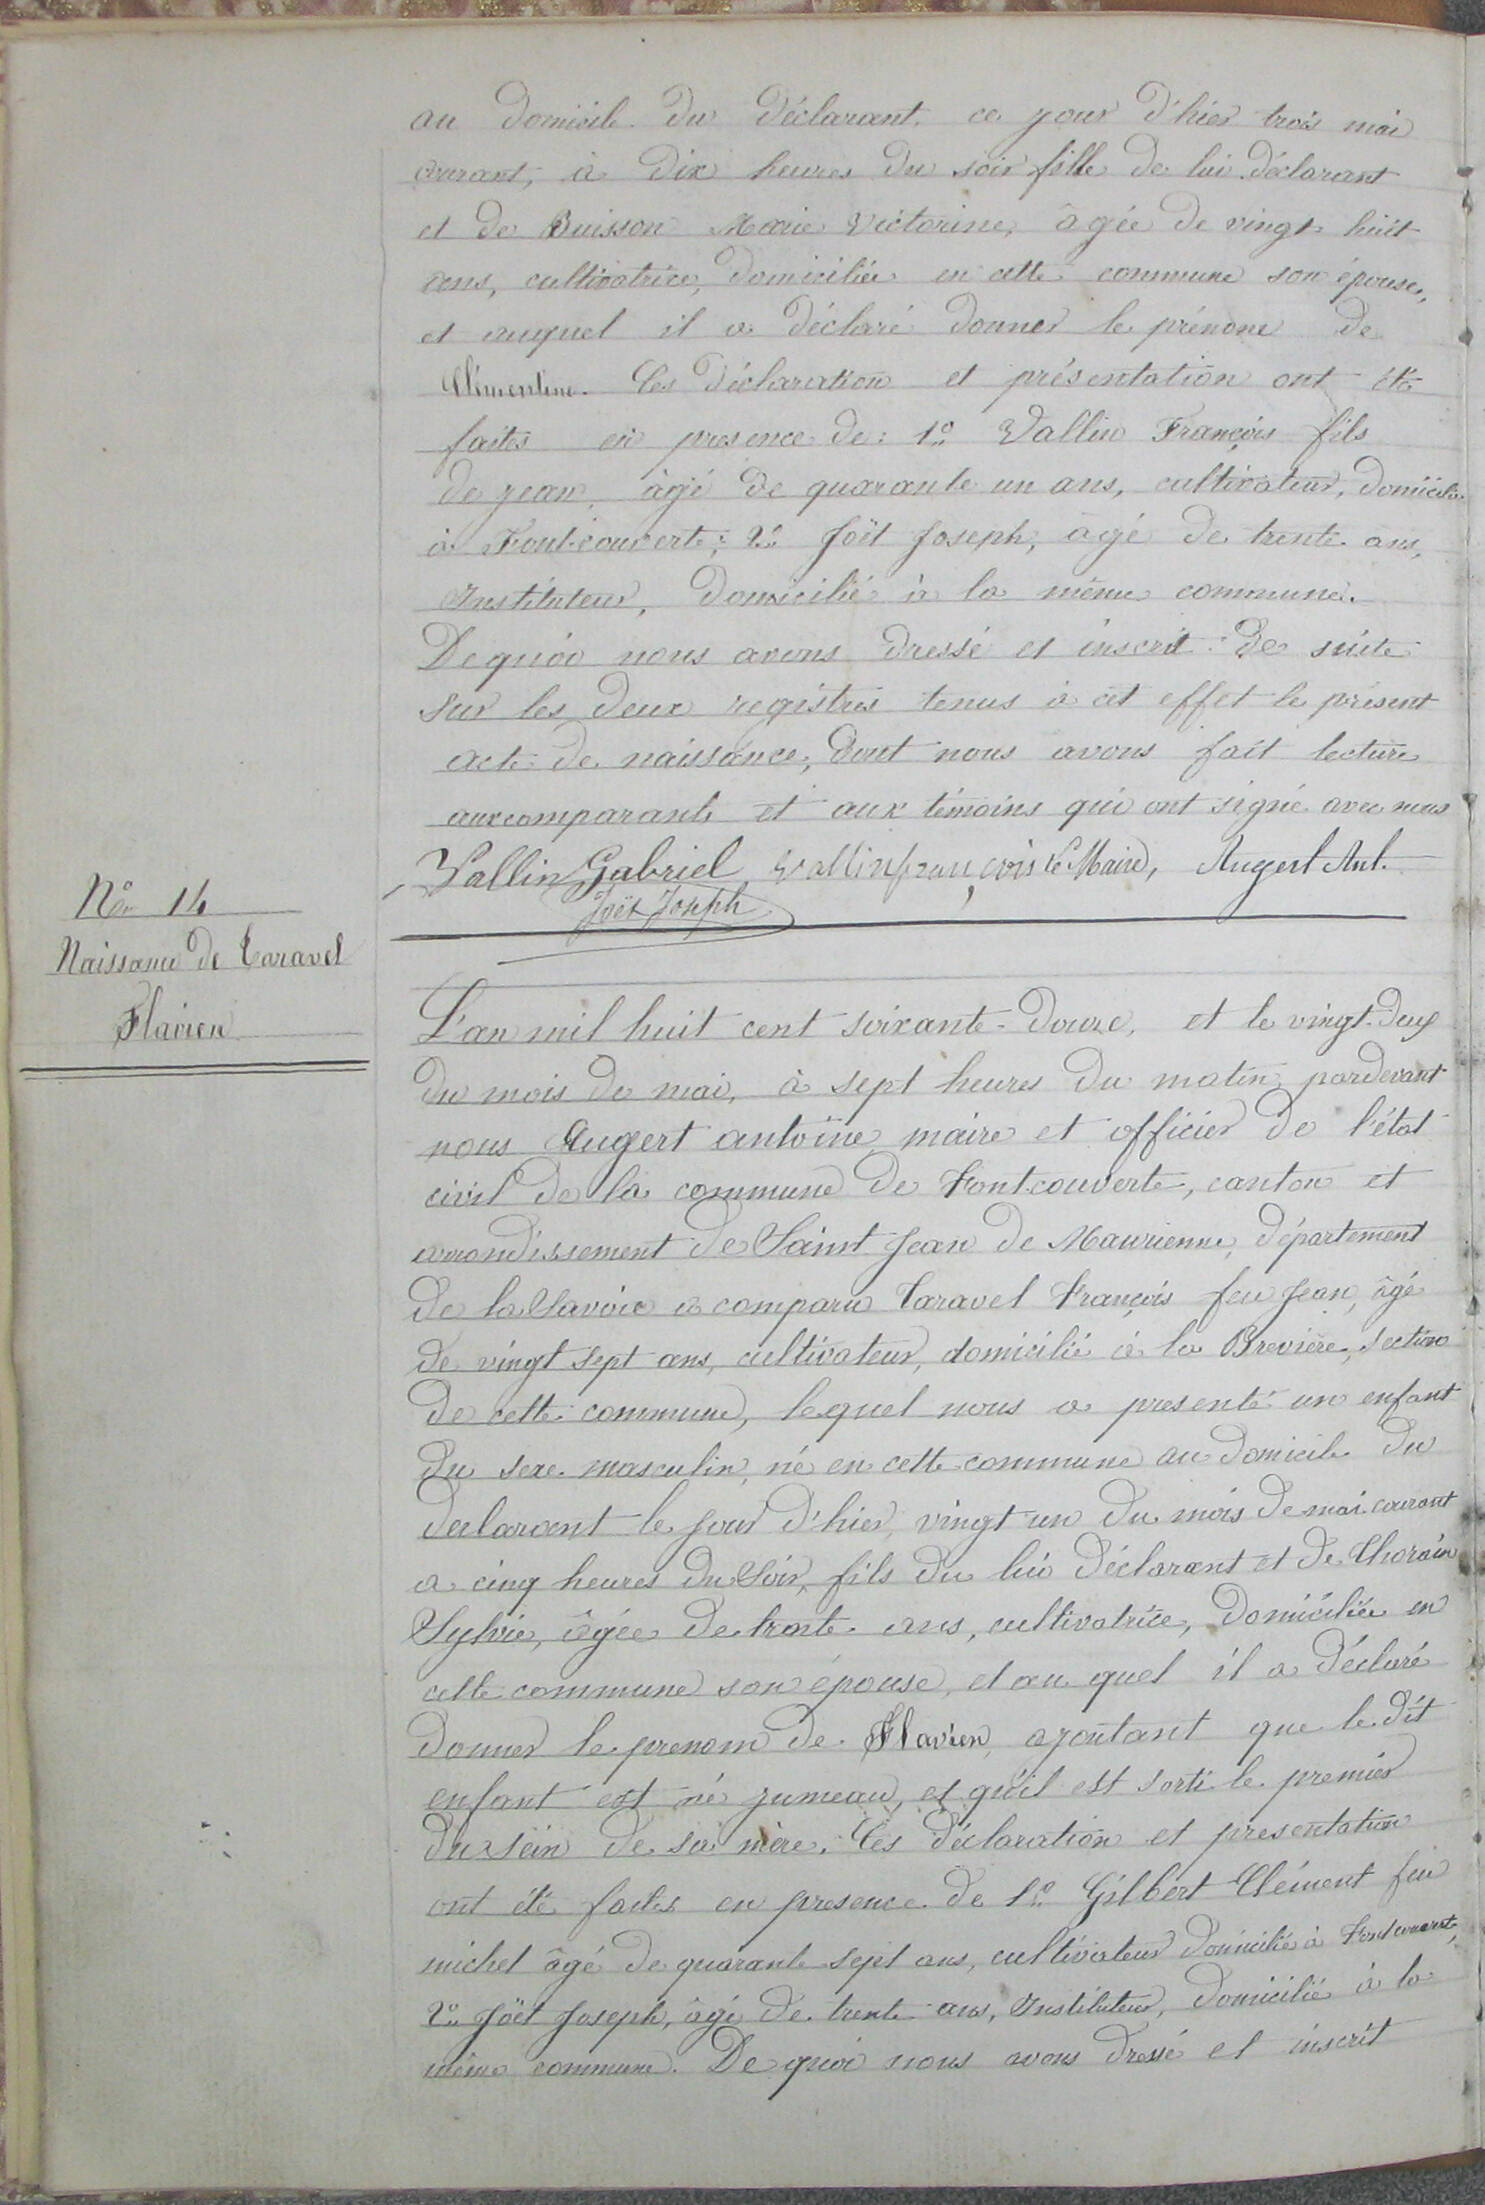 au domicile du déclarant, ce jour d'hier trois mai
courant, à dix heures du soir fille de lui déclarant
et de Buisson Marie Victorine, âgée de vingt huit
ans, cultivatrice, domiciliée en cette commune son épouse,
et auquel il a déclaré donner le prénom de
Clémentine. Ces déclaration et présentation ont été
faites en presence de: 1° Vallin François fils
de jean, âgé de quarante un ans, cultivateur, domicilié
à Fontcouverte; 2° Joët Joseph, âgé de trente ans,
Instituteur, domicilié à la même commune.
De quoi nous avons dressé et inscrit de suite
sur les deux registres tenus à cet effet le présent
acte de naissance, dont nous avons fait lecture
aux comparants et aux témoins qui ont signé avec nous
Vallin Gabriel vallin françois Le Maire, Augert Ant.
Joët Joseph
N° 14
Naissance de Taravel
Flavien
L'an mil huit cent soixante-douze, et le vingt-deux
du mois de mai, à sept heures du matin, pardevant
nous Augert antoine maire et officier de l'état
civil de la commune de Fontcouverte, canton et
arrondissement de Saint Jean de Maurienne, département
de la Savoie a comparu Taravel François feu Jean, âgé
de vingt sept ans, cultivateur, domicilié à la Brevière, section
de cette commune, lequel nous a presenté un enfant
du sexe masculin, né en cette commune au domicile du
declarant le jour d'hier, vingt un du mois de mai courant
a cinq heures du Soir, fils du lui déclarant et de Thorain
Sylvie, âgée de trente ans, cultivatrice, domiciliée en
cette commune son épouse, et au quel il a déclaré
donner le prenom de Flavien, ajoutant que le dit
enfant est né jumeau, et qu'il est sorti le premier
du sein de sa mère. Ces déclaration et presentation
ont été faites en presence de 1° Gilbert Clément feu
michel âgé de quarante sept ans, cultivateur domicilié à Fontcouverte,
2° Joët Joseph, âgé de trente ans, Instituteur, domicilié à la
même commune. De quoi nous avons dressé et inscrit